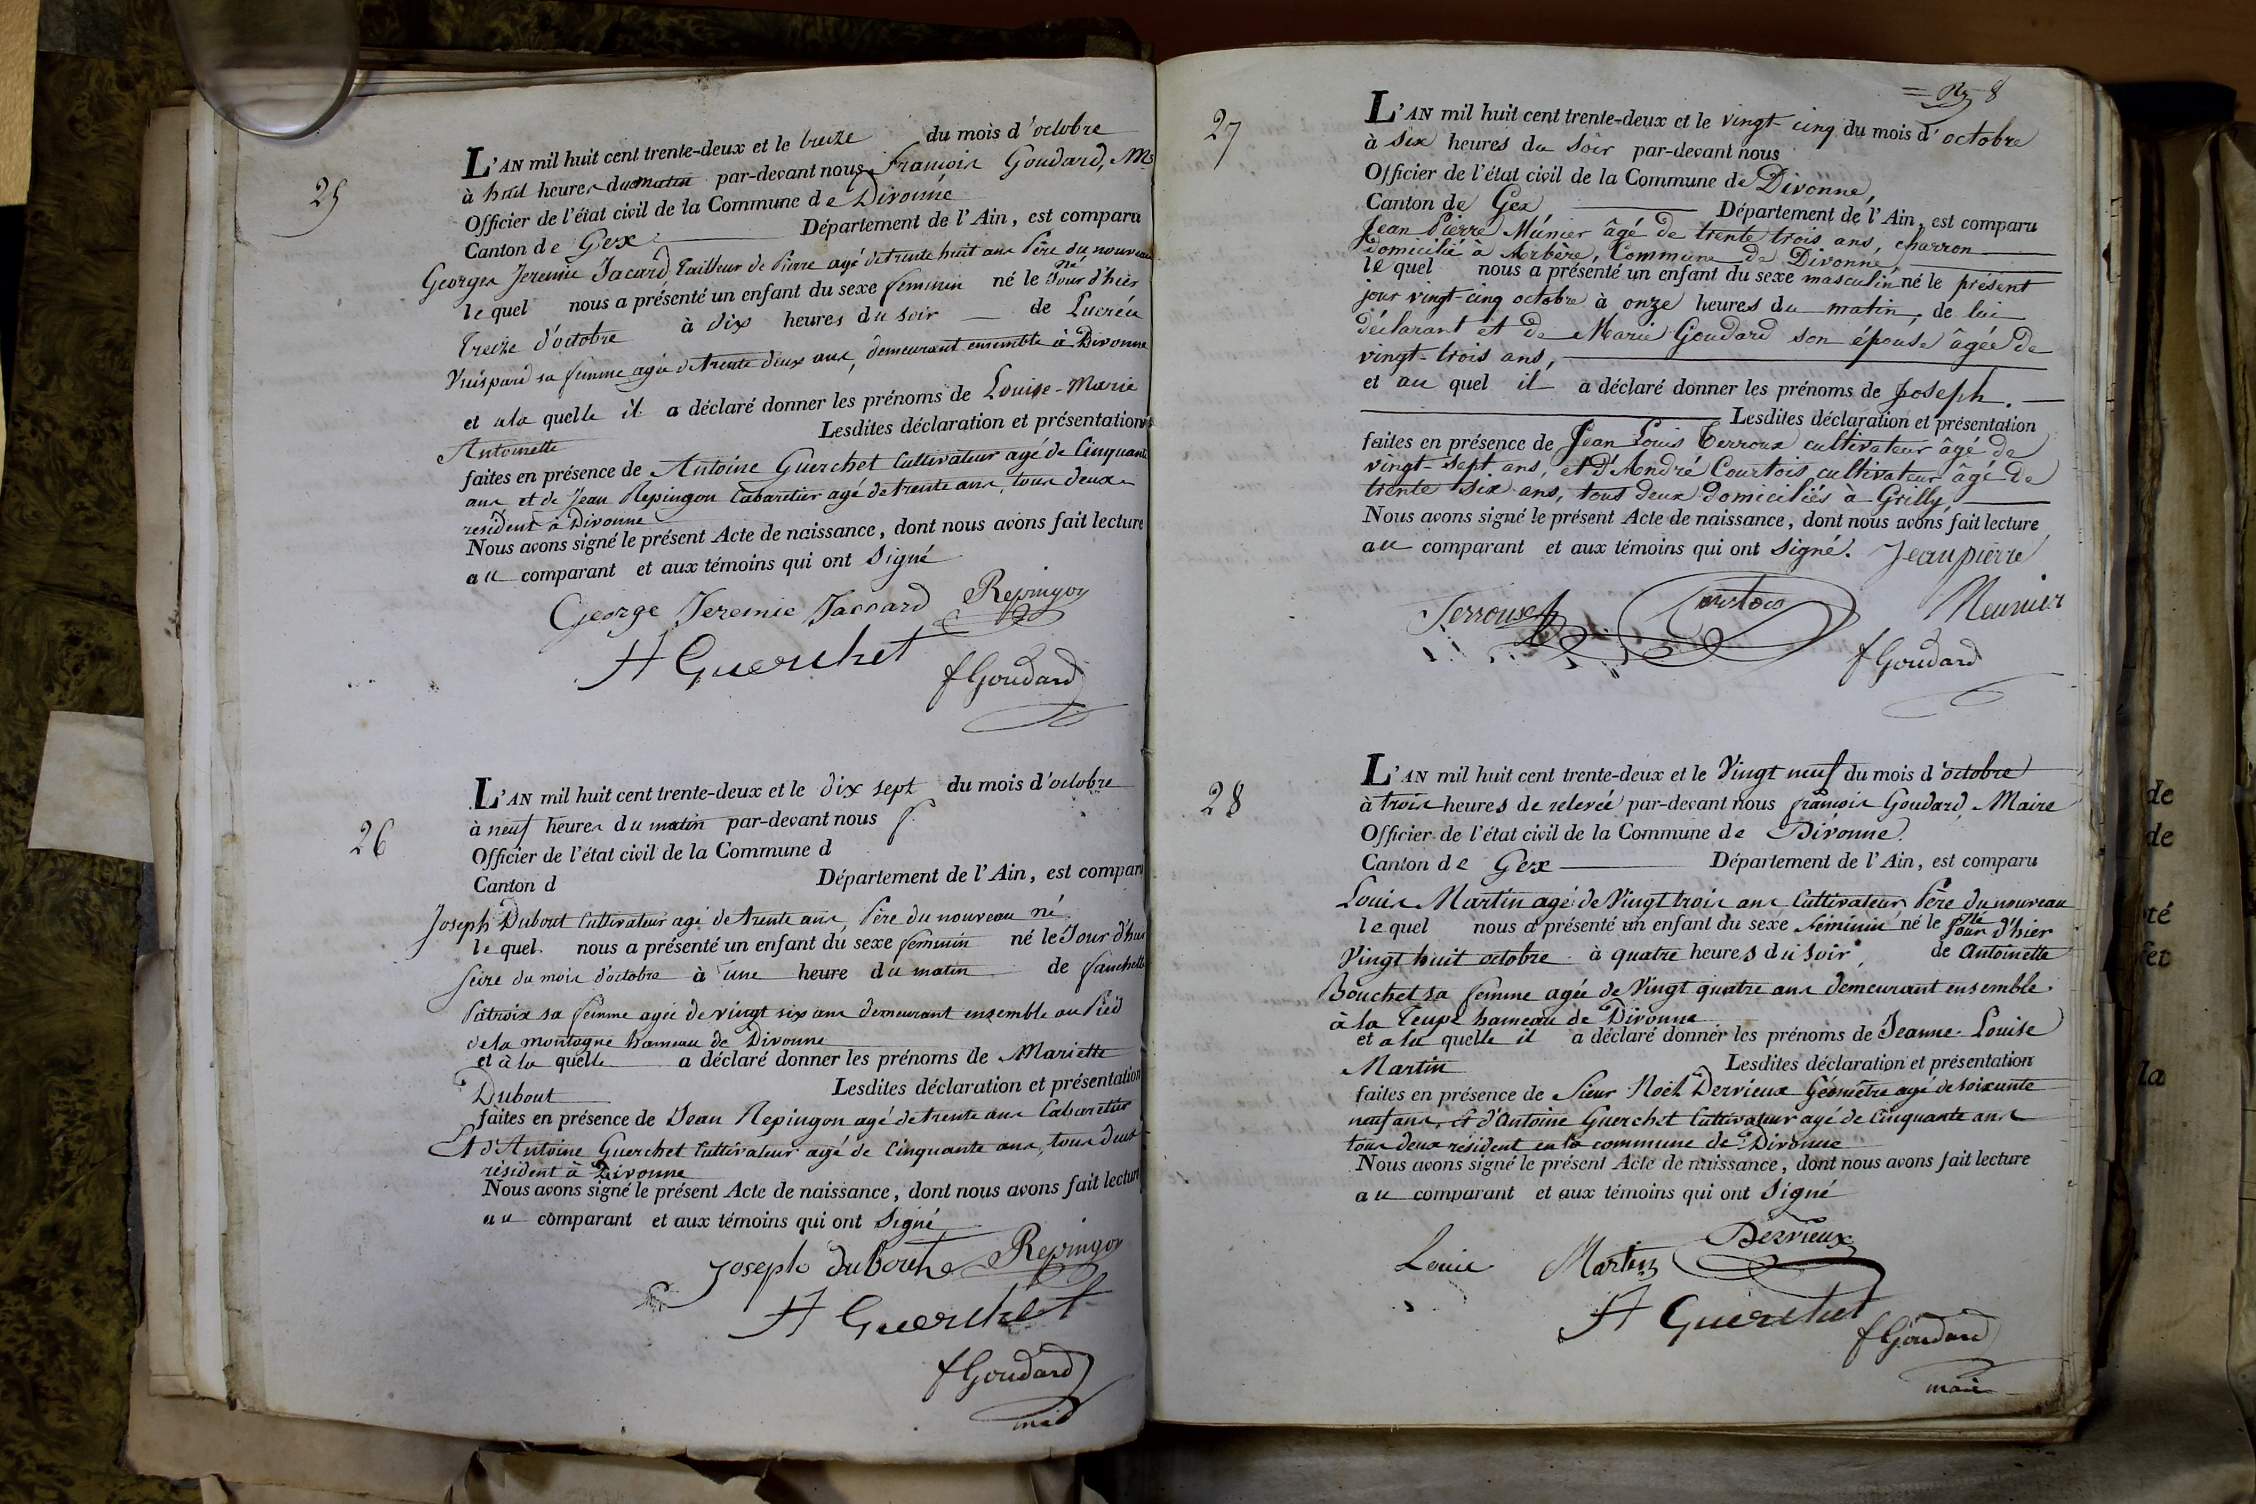 25
L'AN mil huit cent trente-deux et le treize du mois d'octobre
à huit heures du matin par-devant nous françois Goudard, M.
Officier de l'état civil de la Commune de Divonne
Canton de Gex Département de l'Ain, est comparu
Georges Jeremie Jacard tailleur de Pierre agé de trente huit ans Père du nouveau
né,
le quel nous a présenté un enfant du sexe feminin né le Jour d'hier
treize d'octobre à dix heures du soir de Lucréce
sa femme agée de trente deux ans, demeurant ensemble à Divonne
et a la quelle il a déclaré donner les prénoms de Louise-Marie
Antoinette Lesdites déclaration et présentation
faites en présence de Antoine Guerchet Cultivateur agé de Cinquante
ans et de Jean Repingon Cabaretier agé de trente ans, tous deux
resident à Divonne
Nous avons signé le présent Acte de naissance, dont nous avons fait lecture
au comparant et aux témoins qui ont signé
George Jeremie Jaccard Repingon
A Guerchet
f Goudard
26
L'AN mil huit cent trente-deux et le dix sept du mois d'octobre
à neuf heures du matin par-devant nous f.
Officier de l'état civil de la Commune d
Canton d Département de l'Ain, est comparu
Joseph Dubout Cultivateur agé de trente ans Père du nouveau né
le quel nous a présenté un enfant du sexe feminin né le Jour d'hier
seize du mois d'octobre à une heure du matin de fanchette
Patroix sa femme agée de vingt six ans demeurant ensemble au Pied
de la montagne hameau de Divonne
et à la quelle a déclaré donner les prénoms de Mariette
Dubout Lesdites déclaration et présentation
faites en présence de Jean Repingon agé de trente ans Cabaretier
Et d'Antoine Guerchet Cultivateur agé de Cinquante ans, tous deux
résident à Divonne
Nous avons signé le présent Acte de naissance, dont nous avons fait lecture
au comparant et aux témoins qui ont signé
Joseph Dubout Repingon
A Guerchet
f Goudard
8
27
L'AN mil huit cent trente-deux et le vingt-cinq du mois d'octobre
à six heures du soir par-devant nous
Officier de l'état civil de la Commune de Divonne,
Canton de Gex Département de l'Ain, est comparu
Jean Pierre Münier âgé de trente trois ans, charron
domicilié à Arbère, Commune de Divonne,
le quel nous a présenté un enfant du sexe masculin né le présent
jour vingt-cinq octobre à onze heures du matin, de lui
déclarant et de Marie Goudard son épouse âgée de
vingt-trois ans,
et au quel il a déclaré donner les prénoms de Joseph.
Lesdites déclaration et présentation
faites en présence de Jean Louis Terroux cultivateur âgé de
vingt-sept ans, et d'André Courtois cultivateur âgé de
trente six ans, tous deux domiciliés à Grilly,
Nous avons signé le présent Acte de naissance, dont nous avons fait lecture
au comparant et aux témoins qui ont signé. Jeanpierre
Terroux Courtois Meunier
f Goudard
28
L'AN mil huit cent trente-deux et le Vingt neuf du mois d'octobre
à trois heures de relevée par-devant nous françois Goudard, Maire
Officier de l'état civil de la Commune de Divonne.
Canton de Gex Département de l'Ain, est comparu
Louis Martin agé de Vingt trois ans Cultivateur Père du nouveau
né
le quel nous a présenté un enfant du sexe féminin né le Jour d'hier
Vingt huit octobre à quatre heures du soir, de Antoinette
Bouchet sa femme agée de Vingt quatre ans demeurant ensemble
à la Teupe hameau de Divonne
et a la quelle il a déclaré donner les prénoms de Jeanne-Louise
Martin Lesdites déclaration et présentation
faites en présence de Sieur Noël Dervieux Géomètre agé de soixante
neuf ans, et d'Antoine Guerchet Cultivateur agé de Cinquante ans
tous deux résident en la commune de Divonne
Nous avons signé le présent Acte de naissance, dont nous avons fait lecture
au comparant et aux témoins qui ont signé
Louis Martin Dervieux
A Guerchet
f Goudard
maire
de
de
té
et
la